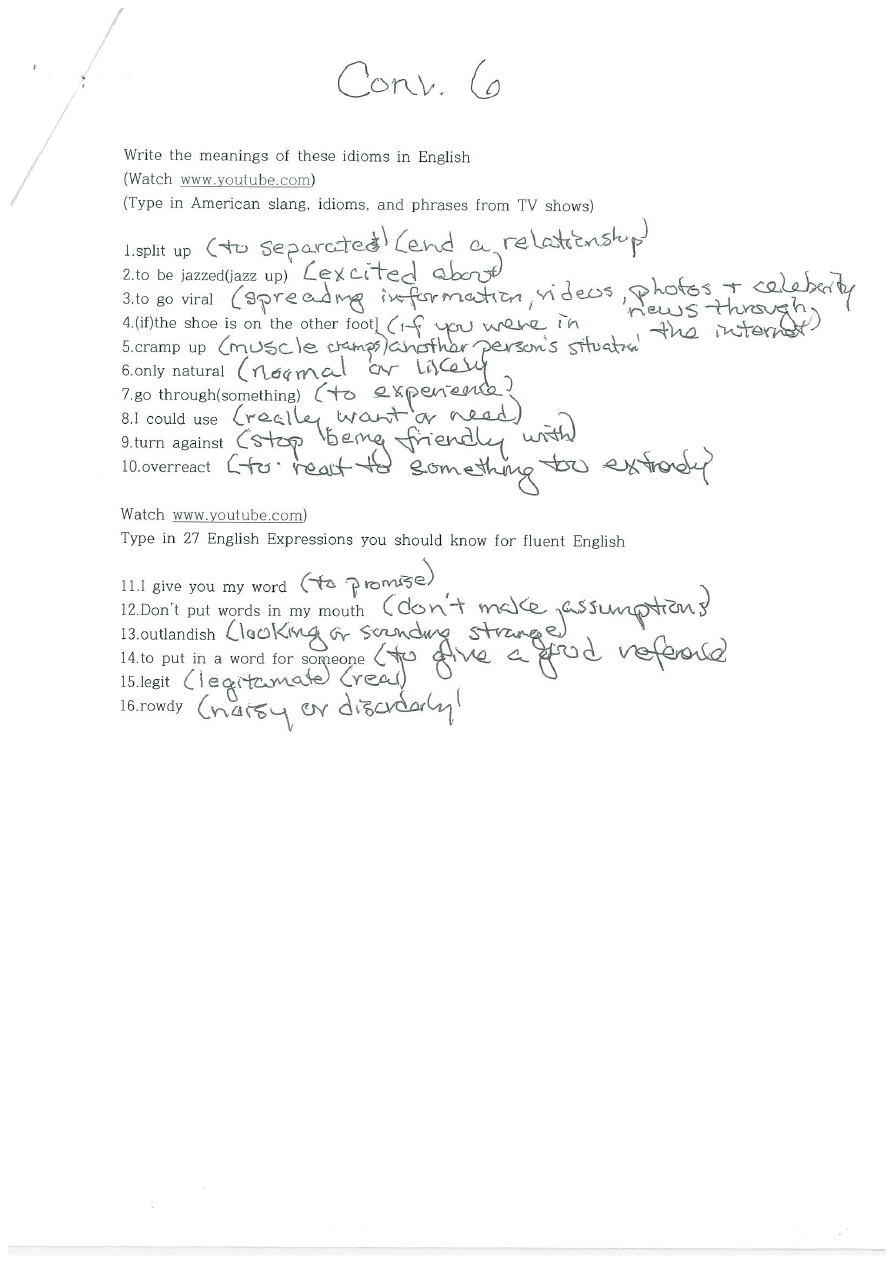 Conv. 6
Write the meanings of these idioms in English
(Watch www.youtube.com)
(Type in American slang, idioms, and phrases from TV shows)
1.split up (to separated) (end a relationship)
2.to be jazzed(jazz up) (excited about)
3.to go viral (spreading information, videos, photos + celebarity
news through
the internet)
4.(if)the shoe is on the other foot) (if you were in
another person's situation
5.cramp up (muscle cramps)
6.only natural (normal or likely
7.go through(something) (to experience)
8.I could use (really want or need)
9.turn against (stop being friendly with)
10.overreact (to react to something too
Watch www.youtube.com)
Type in 27 English Expressions you should know for fluent English
11.I give you my word (to promise)
12.Don't put words in my mouth (don't make assumptions)
13.outlandish (looking or sounding strange)
14.to put in a word for someone (to give a good
15.legit (legitamate) (real)
16.rowdy (noisy or disorderly)